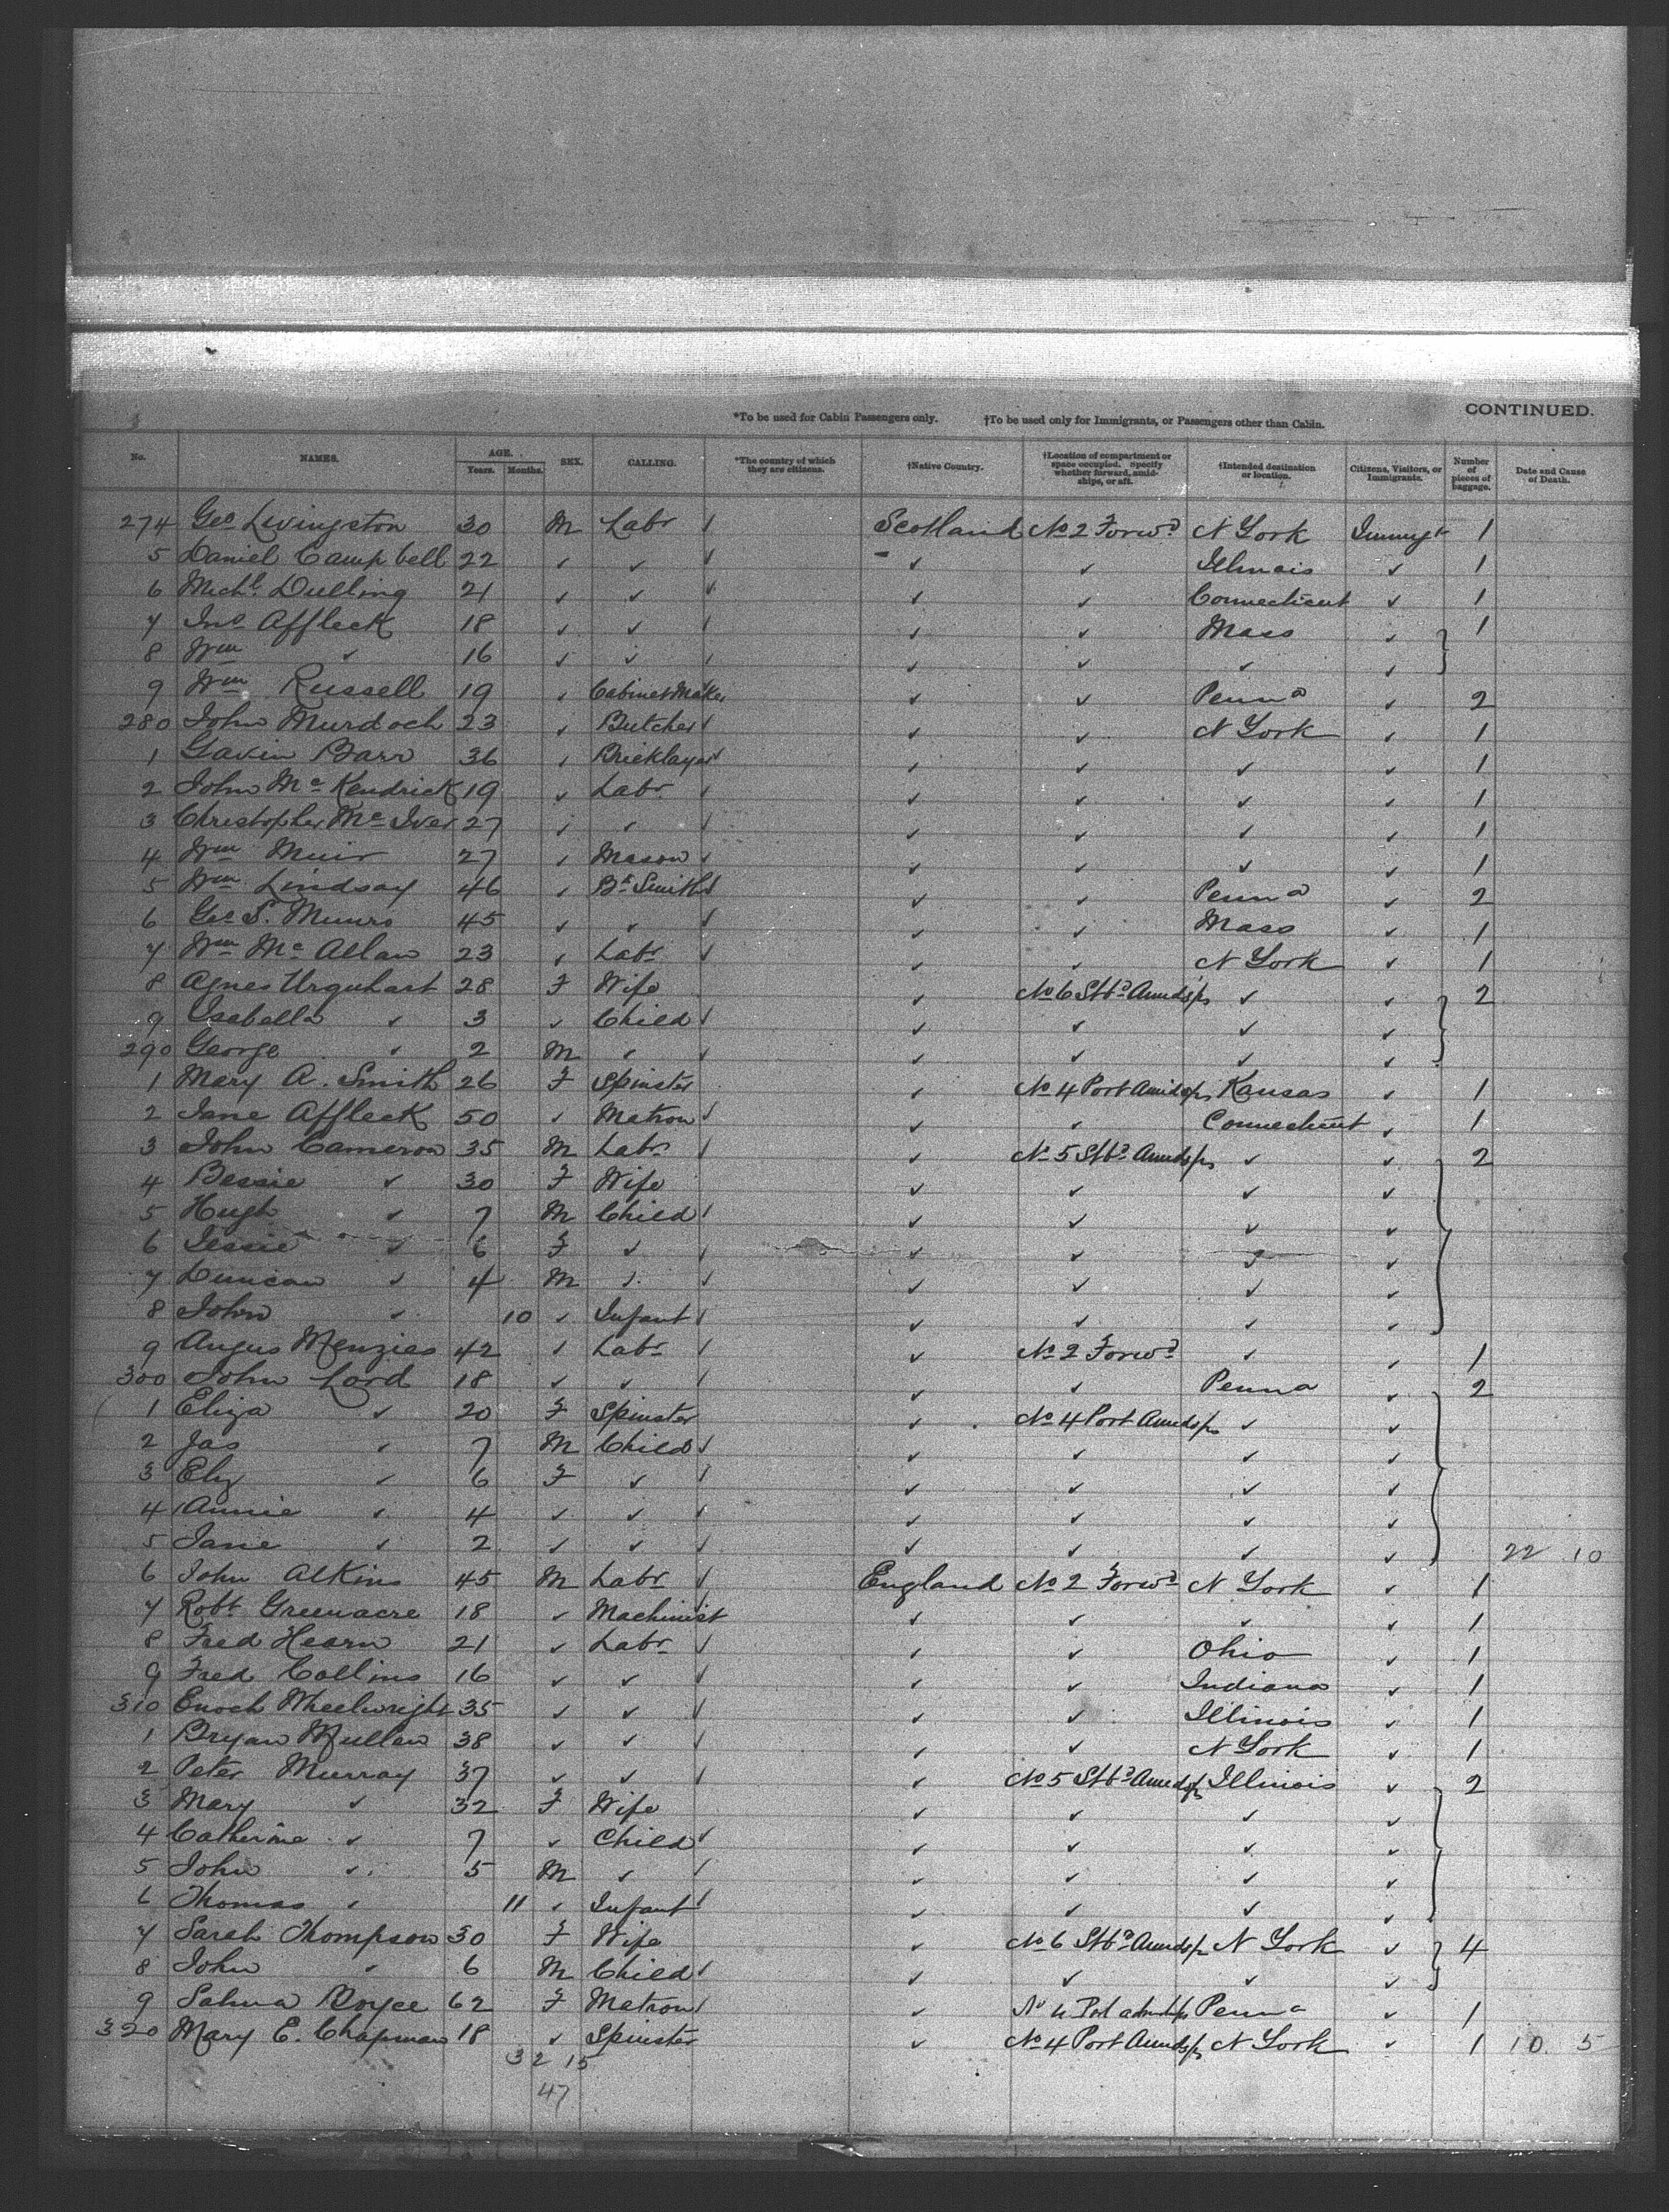 CONTINUED.
*To be used for Cabin Passengers only. †To be used only for Immigrants, or Passengers other than Cabin.
No. NAMES. AGE. Years. Months. SEX. CALLING. *The country of which they are citizens. †Native Country. †Location of compartment or space occupied. Specify whether forward, amidships, or aft. †Intended destination or location. Citizens, Visitors, or Immigrants. Number of pieces of baggage. Date and Cause of Death.
274 Geo Livingston 30 M Labr ✓ Scotland No 2 Forwd N York Immigt 1
5 Daniel Campbell 22 ✓ ✓ ✓ ✓ ✓ Illinois ✓ 1
6 Michl Dulling 21 ✓ ✓ ✓ ✓ ✓ Connecticut ✓ 1
7 Jno Affleck 18 ✓ ✓ ✓ ✓ ✓ Mass ✓ 1
8 Wm ✓ 16 ✓ ✓ ✓ ✓ ✓ ✓ ✓
9 Wm Russell 19 ✓ Cabinet Maker ✓ ✓ Penna ✓ 2
280 John Murdoch 23 ✓ Butcher ✓ ✓ ✓ N York ✓ 1
1 Gavin Barr 36 ✓ Bricklayer ✓ ✓ ✓ ✓ ✓ 1
2 John McKendrick 19 ✓ Labr ✓ ✓ ✓ ✓ ✓ 1
3 Christopher McIver 27 ✓ ✓ ✓ ✓ ✓ ✓ ✓ 1
4 Wm Muir 27 ✓ Mason ✓ ✓ ✓ ✓ ✓ 1
5 Wm Lindsay 46 ✓ Bk Smith ✓ ✓ ✓ Penna ✓ 2
6 Geo S. Munro 45 ✓ ✓ ✓ ✓ ✓ Mass ✓ 1
7 Wm McAllan 23 ✓ Labr ✓ ✓ ✓ N York ✓ 1
8 Agnes Urquhart 28 F Wife ✓ No 6 Stbd Amidsps ✓ ✓ 2
9 Isabella ✓ 3 ✓ Child ✓ ✓ ✓ ✓ ✓
290 George ✓ 2 M ✓ ✓ ✓ ✓ ✓ ✓
1 Mary A. Smith 26 F Spinster ✓ No 4 Port Amidsps Kansas ✓ 1
2 Jane Affleck 50 ✓ Matron ✓ ✓ ✓ Connecticut ✓ 1
3 John Cameron 35 M Labr ✓ ✓ No 5 Stbd Amidsps ✓ ✓ 2
4 Bessie ✓ 30 F Wife ✓ ✓ ✓ ✓
5 Hugh ✓ 7 M Child ✓ ✓ ✓ ✓ ✓
6 Jessie ✓ 6 F ✓ ✓ ✓ ✓ ✓ ✓
7 Duncan ✓ 4 M ✓ ✓ ✓ ✓ ✓ ✓
8 John ✓ 10 ✓ Infant ✓ ✓ ✓ ✓ ✓
9 Angus Menzies 42 ✓ Labr ✓ ✓ No 2 Forwd ✓ ✓ 1
300 John Lord 18 ✓ ✓ ✓ ✓ ✓ Penna ✓ 2
1 Eliza ✓ 20 F Spinster ✓ No 4 Port Amidsps ✓ ✓
2 Jas ✓ 7 M Child ✓ ✓ ✓ ✓ ✓
3 Eliz ✓ 6 F ✓ ✓ ✓ ✓ ✓ ✓
4 Annie ✓ 4 ✓ ✓ ✓ ✓ ✓ ✓ ✓
5 Jane ✓ 2 ✓ ✓ ✓ ✓ ✓ ✓ ✓ 22 10
6 John Atkins 45 M Labr ✓ England No 2 Forwd N York ✓ 1
7 Robt Greenacre 18 ✓ Machinist ✓ ✓ ✓ ✓ 1
8 Fred Hearn 21 ✓ Labr ✓ ✓ ✓ Ohio ✓ 1
9 Fred Collins 16 ✓ ✓ ✓ ✓ ✓ Indiana ✓ 1
310 Enoch Wheelwright 35 ✓ ✓ ✓ ✓ ✓ Illinois ✓ 1
1 Bryan Mullen 38 ✓ ✓ ✓ ✓ ✓ N York ✓ 1
2 Peter Murray 37 ✓ ✓ ✓ ✓ No 5 Stbd Amidsps Illinois ✓ 2
3 Mary ✓ 32 F Wife ✓ ✓ ✓ ✓
4 Catherine ✓ 7 ✓ Child ✓ ✓ ✓ ✓ ✓
5 John ✓ 5 M ✓ ✓ ✓ ✓ ✓ ✓
6 Thomas ✓ 11 ✓ Infant ✓ ✓ ✓ ✓ ✓
7 Sarah Thompson 30 F Wife ✓ No 6 Stbd Amidsps N York ✓ 4
8 John ✓ 6 M Child ✓ ✓ ✓ ✓ ✓
9 Boyce 62 F Matron ✓ ✓ No 4 Port Penna ✓ 1
320 Mary E. Chapman 18 ✓ Spinster ✓ No 4 Port Amidsps N York ✓ 1 10 5
32 15
47